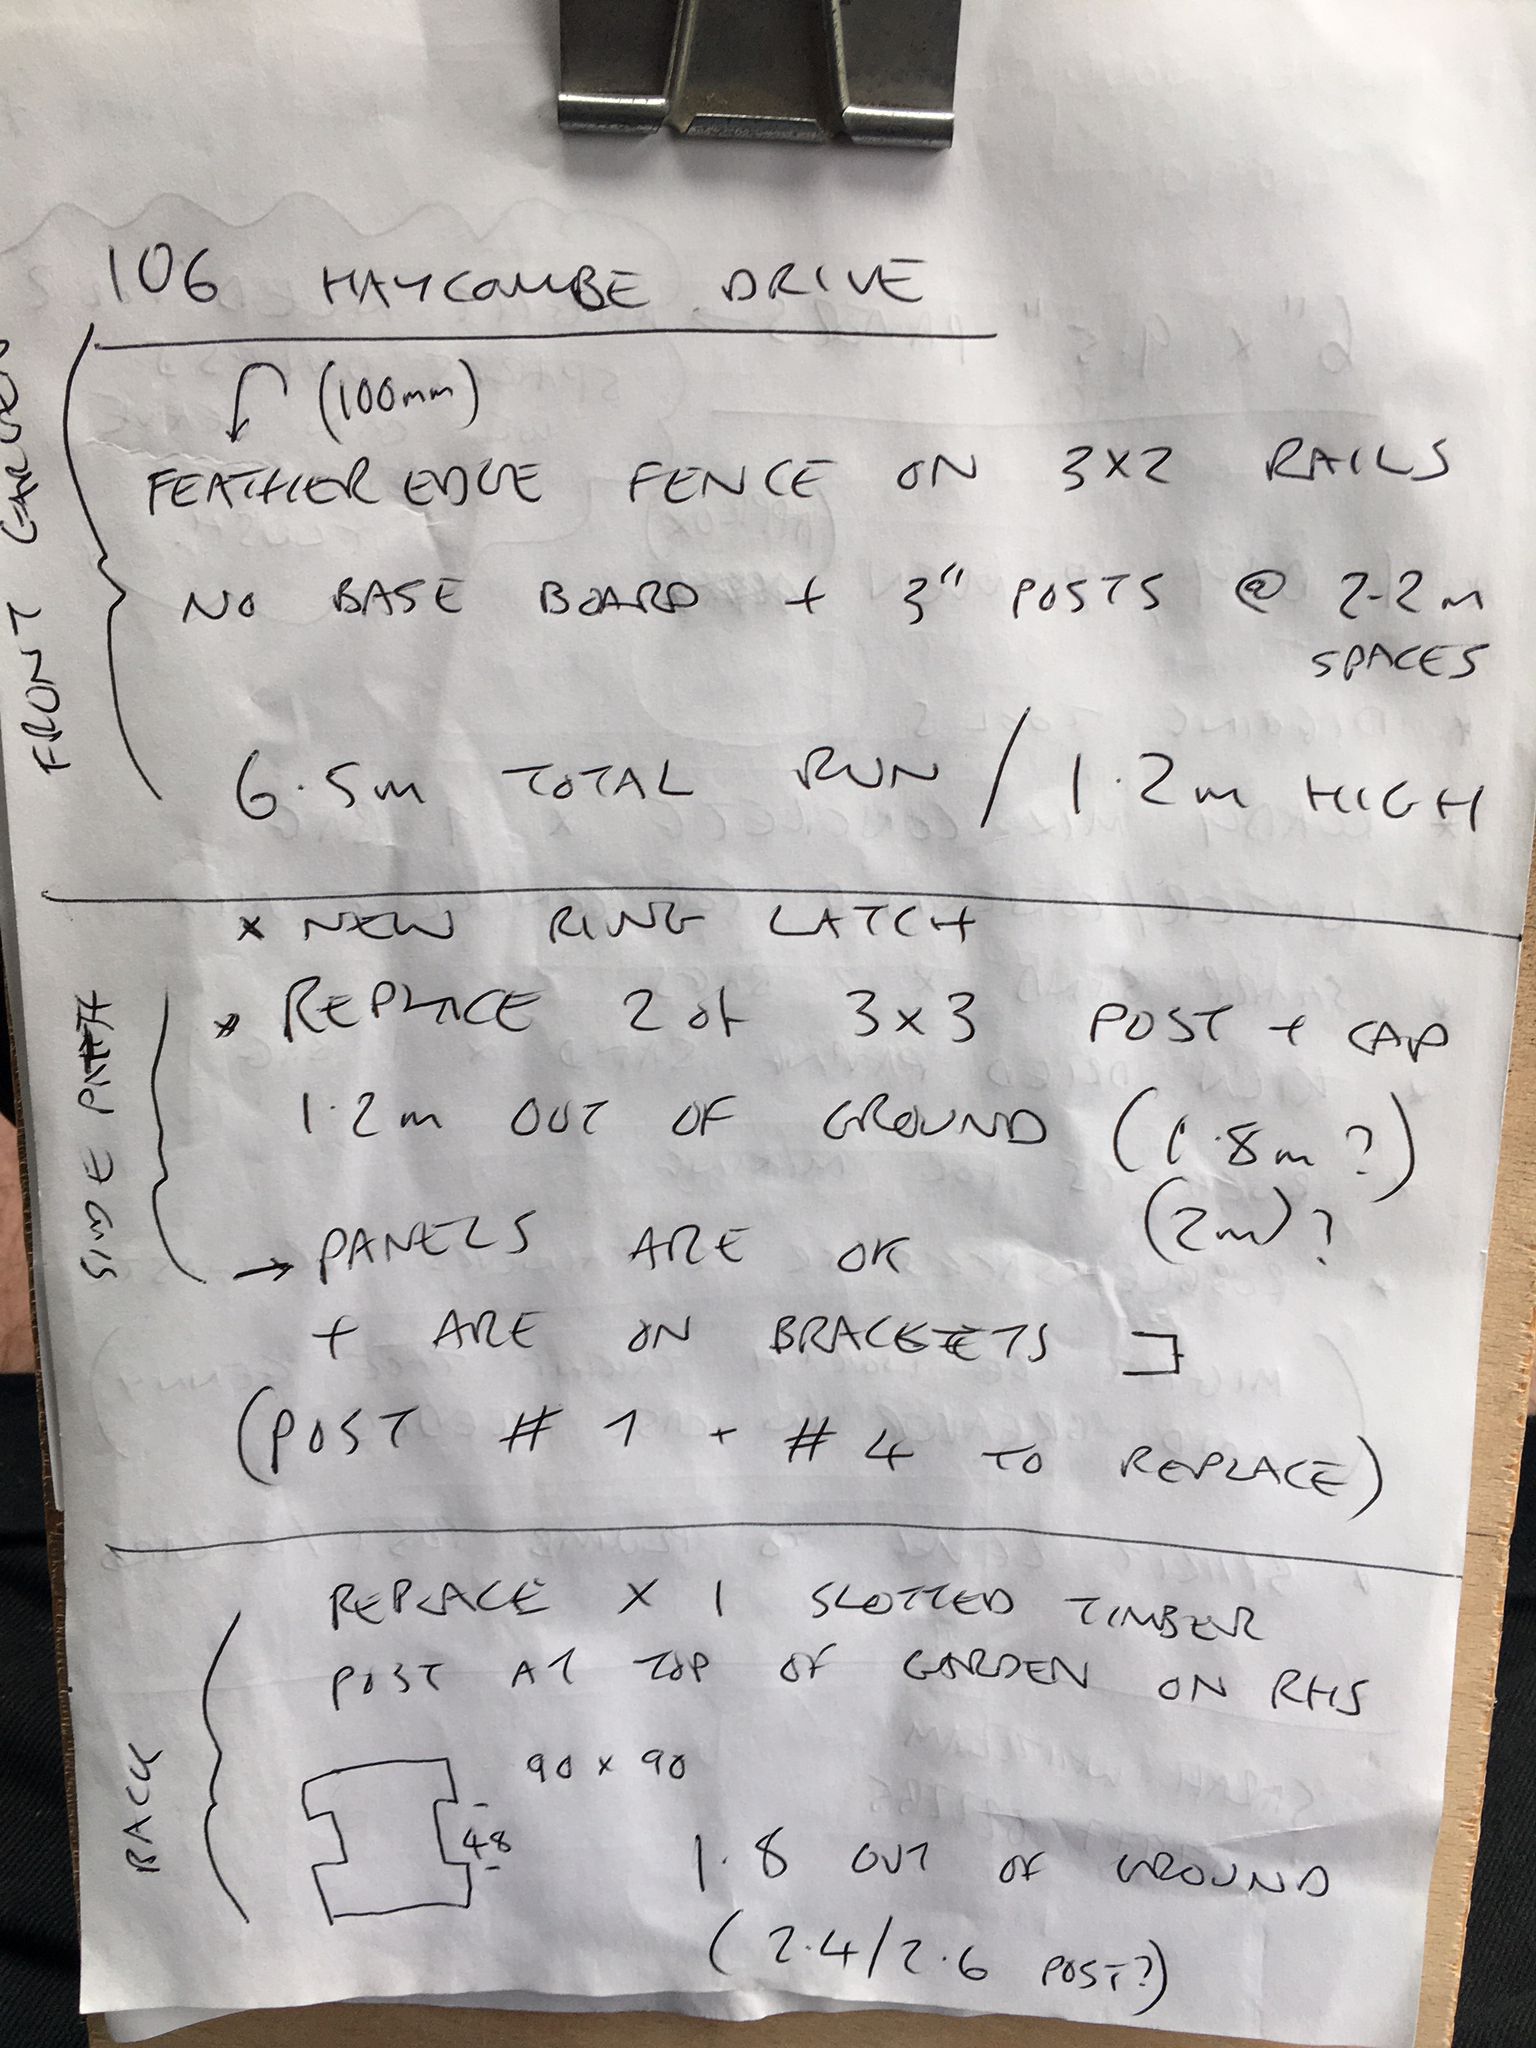 106 HAYCOMBE DRIVE
FRONT GARDEN
(100mm)
FEATHER EDGE FENCE ON 3X2 RAILS
NO BASE BOARD + 3" POSTS @ 2.2m
SPACES
6.5m TOTAL RUN / 1.2m HIGH
SIDE PATH
* NEW RING LATCH
* REPLACE 2 of 3x3 POST + CAP
1.2m OUT OF GROUND (1.8m?)
(2m)?
→ PANELS ARE OK
+ ARE ON BRACKETS
(POST #1 + #4 TO REPLACE)
BACK
REPLACE X 1 SLOTTED TIMBER
POST AT TOP OF GARDEN ON RHS
90 x 90
48
1.8 OUT OF GROUND
(2.4/2.6 POST?)